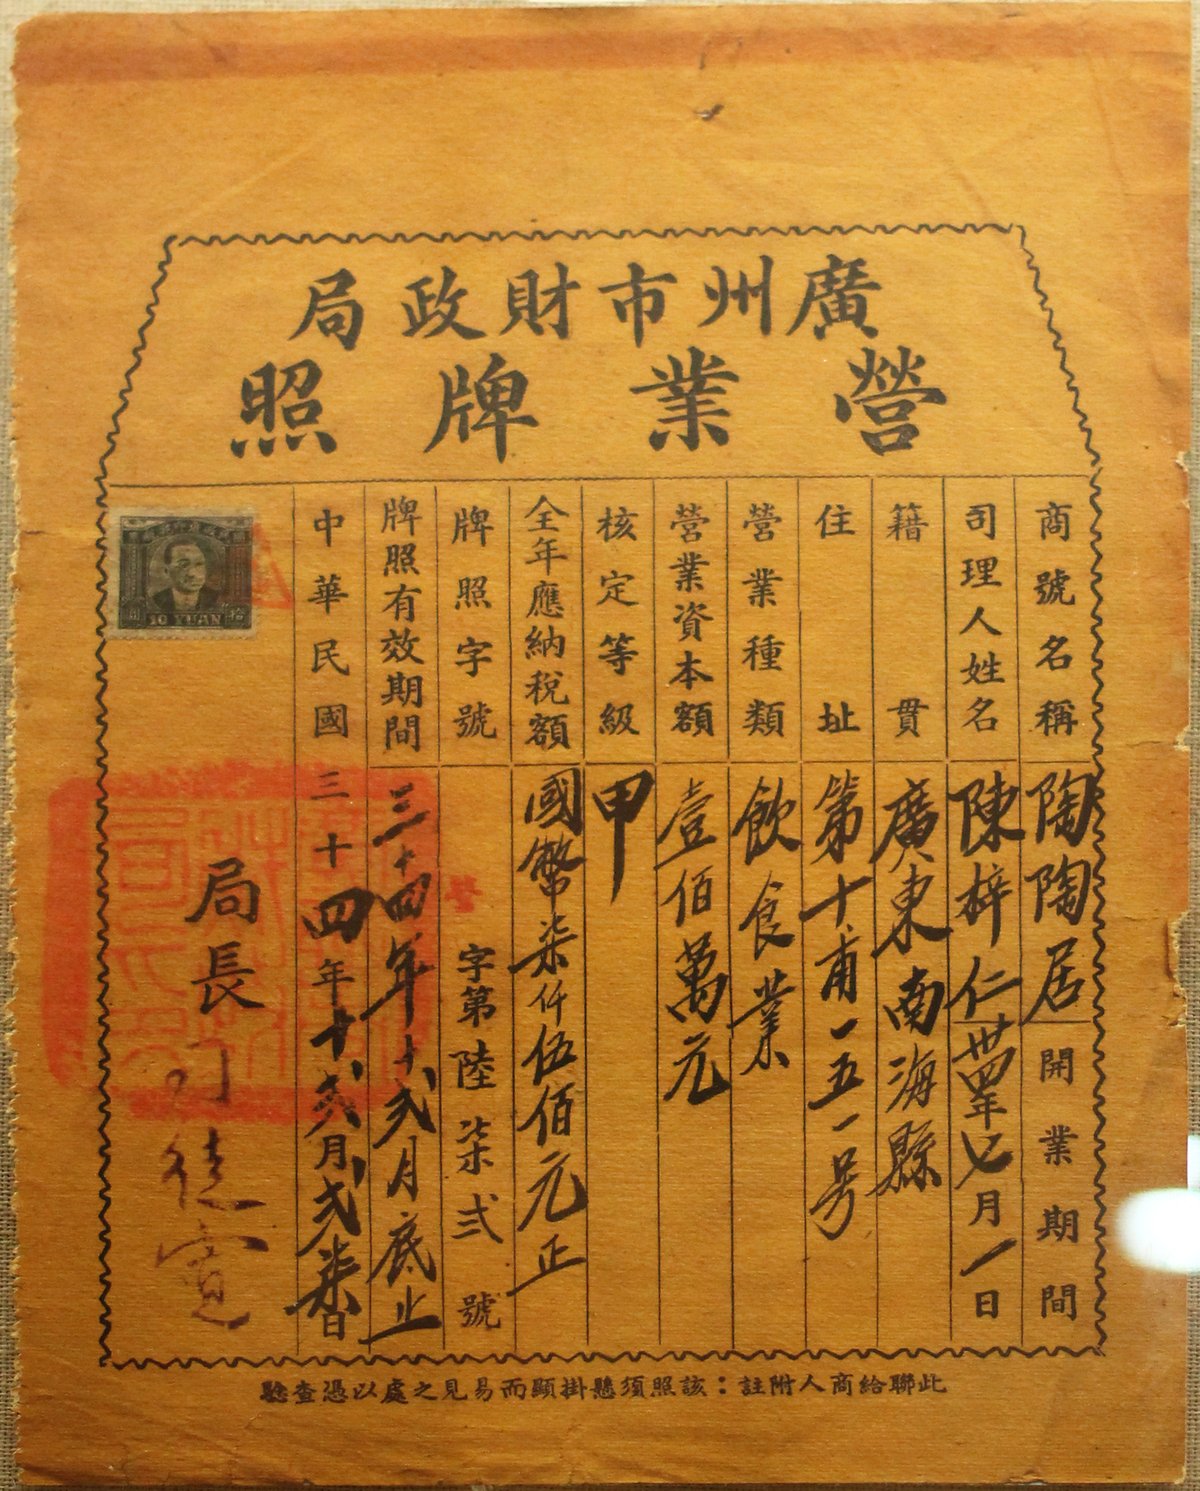 廣州市財政局
營業牌照
商號名稱 陶陶居 開業期間
司理人姓名 陳梓仁 卅四年七月一日
籍貫 廣東南海縣
住址 第十甫一五一号
營業種類 飲食業
營業資本額 壹佰萬元
核定等級 甲
全年應納稅額 國幣柒仟伍佰元正
牌照字號 營字第陸柒弍號
牌照有效期間 三十四年十弍月底止
中華民國三十四年十弍月弍柒日
局長
10 YUAN
此聯給商人附註：該照須懸掛顯而易見之處以憑查驗